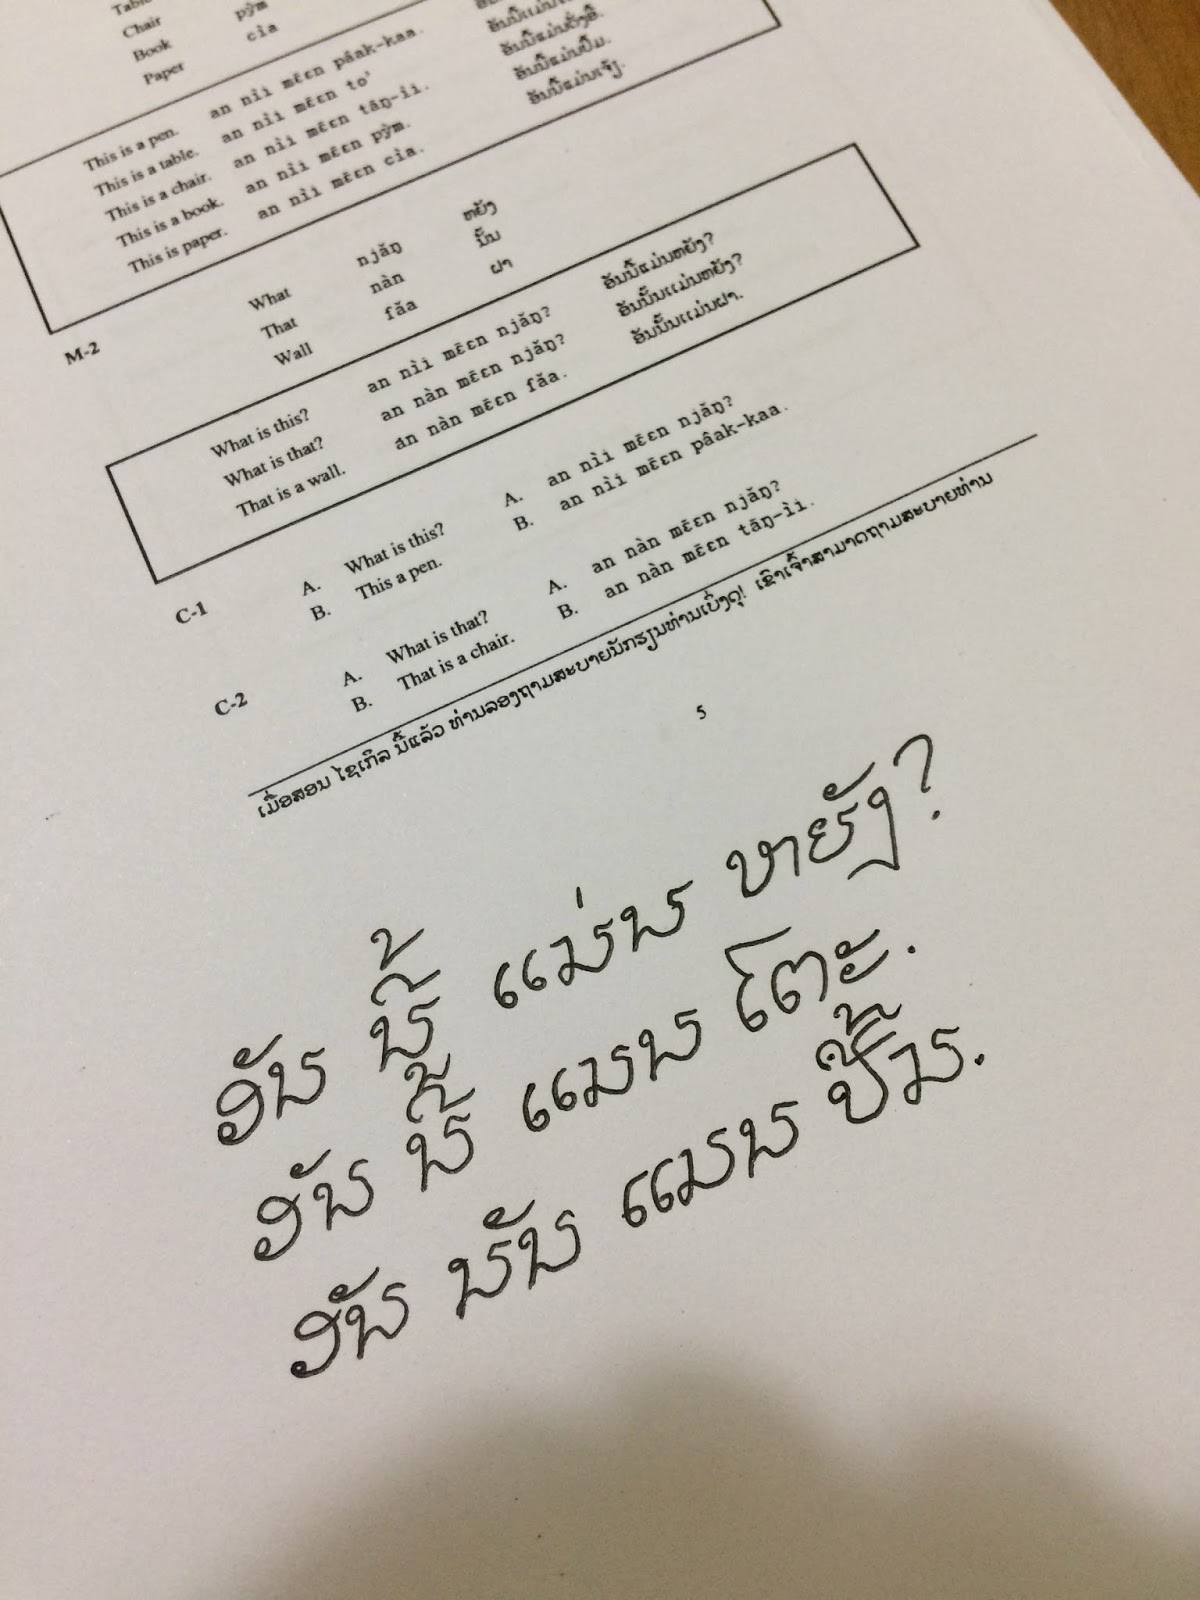 Table
Chair
Book pỳm
Paper cìa
This is a pen. an nìi mɛ̄ɛn pâak-kaa.
This is a table. an nìi mɛ̄ɛn to'
This is a chair. an nìi mɛ̄ɛn tāŋ-ìi. ອັນນີ້ແມ່ນຕັ່ງອີ້.
This is a book. an nìi mɛ̄ɛn pỳm. ອັນນີ້ແມ່ນປຶ້ມ.
This is paper. an nìi mɛ̄ɛn cìa. ອັນນີ້ແມ່ນເຈ້ຽ.
M-2
What njăŋ ຫຍັງ
That nàn ນັ້ນ
Wall făa ຝາ
What is this? an nìi mɛ̄ɛn njăŋ? ອັນນີ້ແມ່ນຫຍັງ?
What is that? an nàn mɛ̄ɛn njăŋ? ອັນນັ້ນແມ່ນຫຍັງ?
That is a wall. an nàn mɛ̄ɛn făa. ອັນນັ້ນແມ່ນຝາ.
C-1
A. What is this? A. an nìi mɛ̄ɛn njăŋ?
B. This a pen. B. an nìi mɛ̄ɛn pâak-kaa.
C-2
A. What is that? A. an nàn mɛ̄ɛn njăŋ?
B. That is a chair. B. an nàn mɛ̄ɛn tāŋ-ìi.
ເມື່ອສອນ ໄຊເກິລ ນີ້ແລ້ວ ທ່ານລອງຖາມສະບາຍນັກຮຽນທ່ານເບິ່ງດຸ! ເຂົາເຈົ້າສາມາດຖາມສະບາຍທ່ານ
5
ອັນ ນີ້ ແມ່ນ ຫຍັງ?
ອັນ ນີ້ ແມນ ໂຕະ.
ອັນ ນັ້ນ ແມນ ປຶ້ມ.